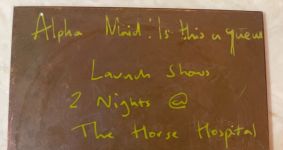 Alpha Maid: Is this a queue
Launch Shows
2 Nights @
The Horse Hospital